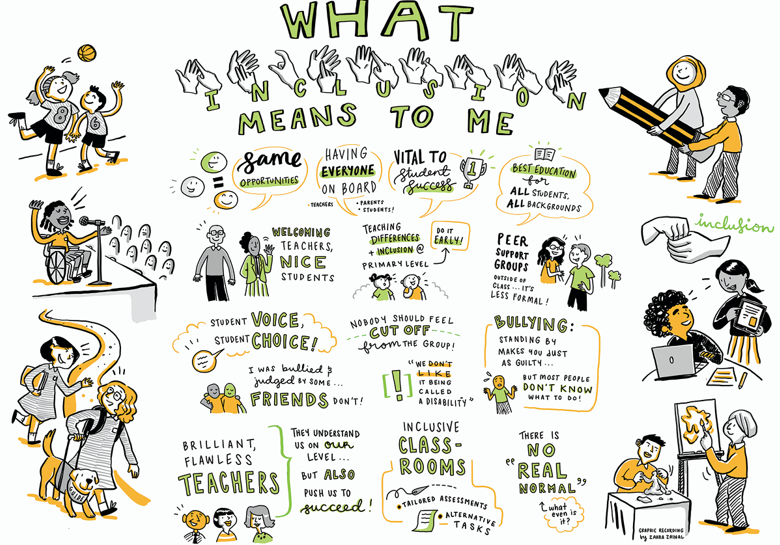 WHAT
INCLUSION
MEANS TO ME
8
6
same
OPPORTUNITIES
HAVING
EVERYONE
ON BOARD
- TEACHERS
• PARENTS
• STUDENTS!
VITAL TO
Student
Success
1
BEST EDUCATION
for
ALL STUDENTS,
ALL BACKGROUNDS
WELCOMING
TEACHERS,
NICE
STUDENTS
TEACHING
DIFFERENCES
+ INCLUSION @
PRIMARY LEVEL
DO IT
EARLY!
PEER
SUPPORT
GROUPS
OUTSIDE OF
CLASS... IT'S
LESS FORMAL!
inclusion
STUDENT VOICE,
STUDENT CHOICE!
I was bullied &
judged by some...
FRIENDS DON'T!
NOBODY SHOULD FEEL
CUT OFF
from THE GROUP!
[!]
"WE DON'T
LIKE
IT BEING
CALLED
A DISABILITY"
BULLYING:
STANDING BY
MAKES YOU JUST
AS GUILTY...
BUT MOST PEOPLE
DON'T KNOW
WHAT TO DO!
BRILLIANT,
FLAWLESS
TEACHERS
THEY UNDERSTAND
US ON our
LEVEL...
BUT ALSO
PUSH US TO
succeed!
INCLUSIVE
CLASS-
ROOMS
• TAILORED ASSESSMENTS
• ALTERNATIVE
TASKS
THERE IS
NO
"REAL
NORMAL"
what
even is
it?
GRAPHIC RECORDING
by ZAHRA ZAINAL